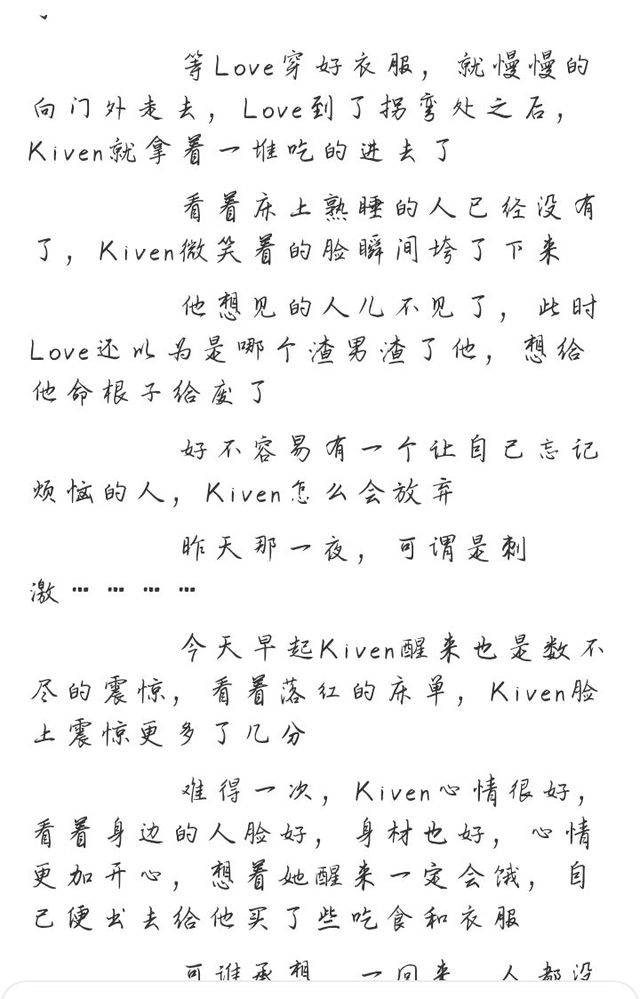 等Love穿好衣服，就慢慢的
向门外走去，Love到了拐弯处之后，
Kiven就拿着一堆吃的进去了
看着床上熟睡的人已经没有
了，Kiven微笑着的脸瞬间垮了下来
他想见的人儿不见了，此时
Love还以为是哪个渣男渣了他，想给
他命根子给废了
好不容易有一个让自己忘记
烦恼的人，Kiven怎么会放弃
昨天那一夜，可谓是刺
激…………
今天早起Kiven醒来也是数不
尽的震惊，看着落红的床单，Kiven脸
上震惊更多了几分
难得一次，Kiven心情很好，
看着身边的人脸好，身材也好，心情
更加开心，想着她醒来一定会饿，自
己便出去给他买了些吃食和衣服
可谁承想，一回来，人都没